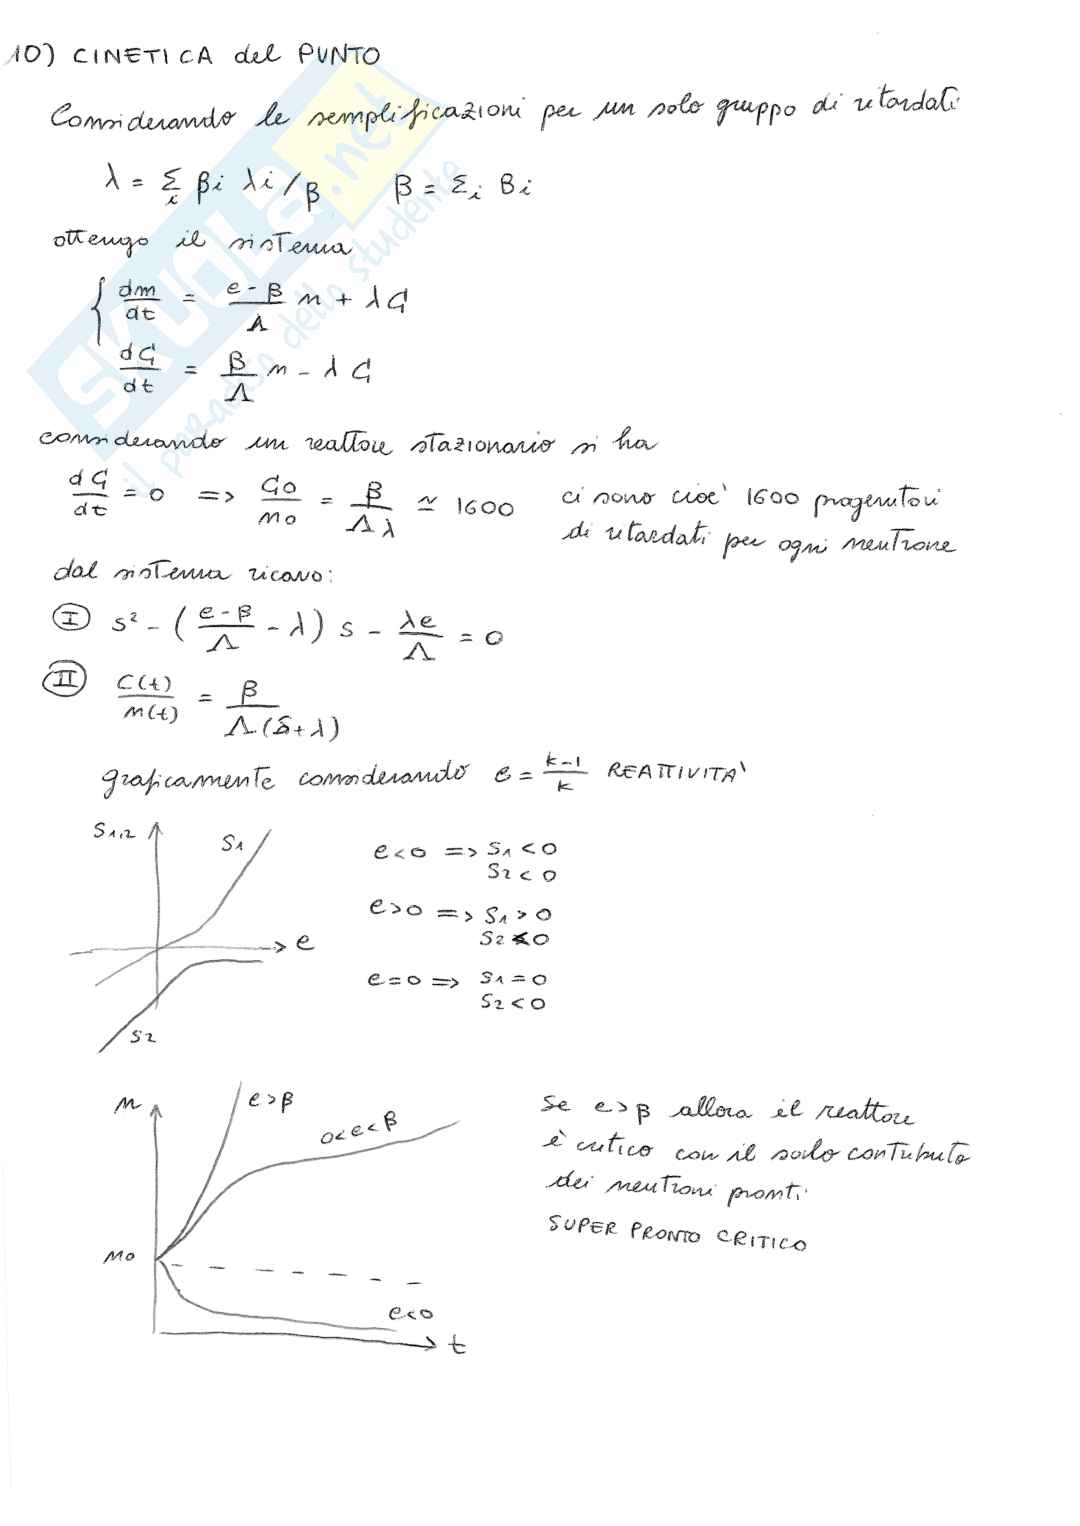 10) CINETICA del PUNTO
Considerando le semplificazioni per un solo gruppo di ritardati
λ = Σi βi λi/β β = Σi Bi
ottengo il sistema
dn/dt = (ρ-β)/Λ n + λ C
dC/dt = β/Λ n - λ C
considerando un reattore stazionario si ha
dC/dt = 0 => C0/n0 = β/(Λ λ) ≃ 1600 ci sono cioè 1600 progenitori
di ritardati per ogni neutrone
dal sistema ricavo:
I s² - ((ρ-β)/Λ - λ) s - λρ/Λ = 0
II C(t)/n(t) = β/(Λ(s+λ))
graficamente considerando ρ = (k-1)/k REATTIVITA'
S1,2 S1
ρ<0 => S1<0
S2<0
ρ>0 => S1>0
S2<0
ρ
ρ=0 => S1=0
S2<0
S2
n ρ>β
0<ρ<β
Se ρ>β allora il reattore
è critico con il solo contributo
dei neutroni pronti
SUPER PRONTO CRITICO
n0
ρ<0
t
SKUOLA.net
il paradiso dello studente